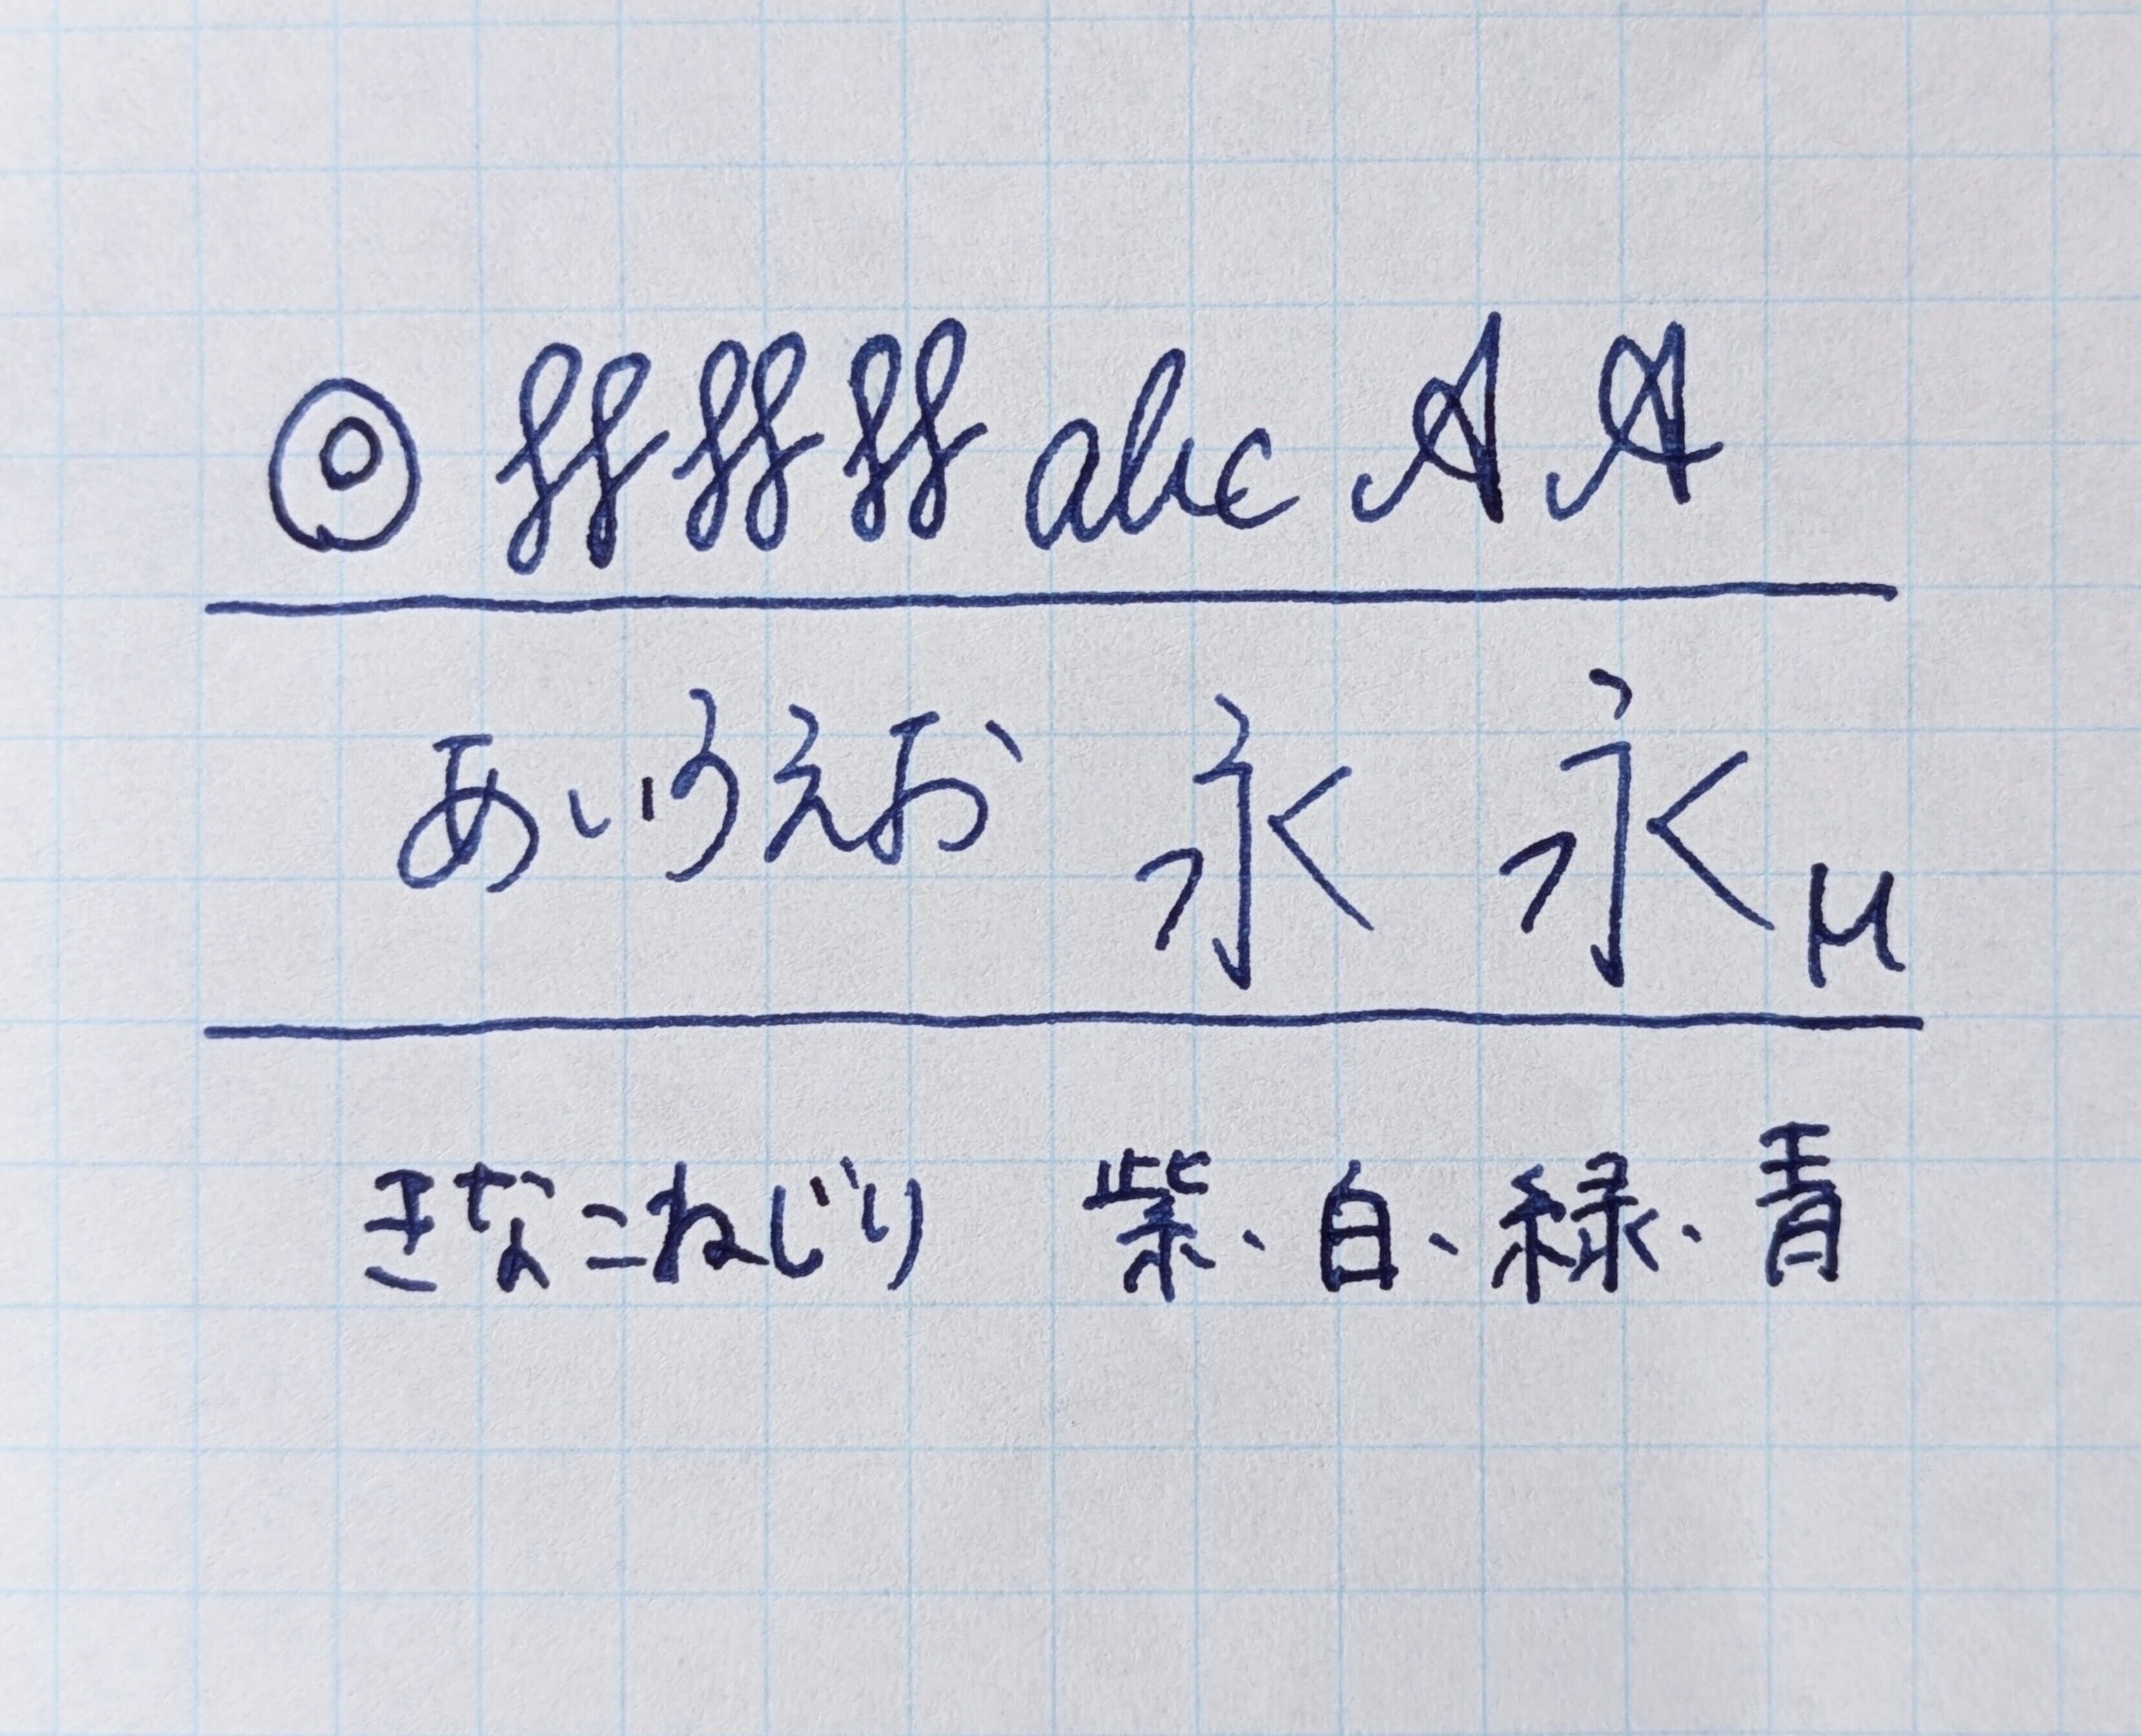 ◎ ff ff ff abc A A
あいうえお 永 永 μ
きなこねじり 紫、白、緑、青